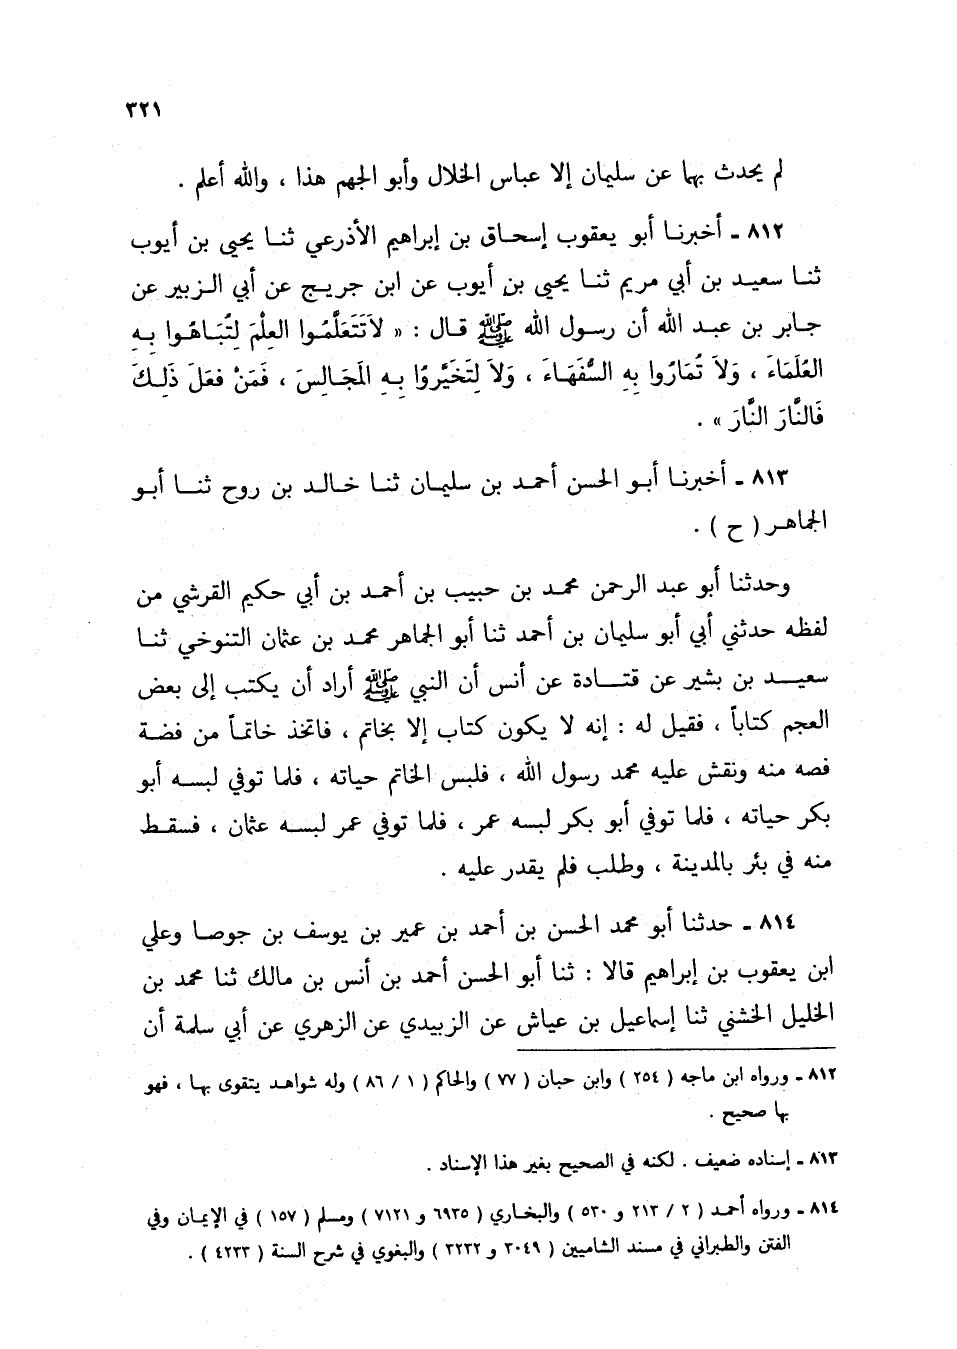 ٣٢١
لم يحدث بها عن سليمان إلا عباس الخلال وأبو الجهم هذا ، والله أعلم .
٨١٢ ـ أخبرنا أبو يعقوب إسحاق بن إبراهيم الأذرعي ثنا يحيى بن أيوب
ثنا سعيد بن أبي مريم ثنا يحيى بن أيوب عن ابن جريج عن أبي الزبير عن
جابر بن عبد الله أن رسول الله ﷺ قال : « لاَتَتَعَلَّمُوا العِلْمَ لِتُبَاهُوا بِهِ
العُلَمَاءَ ، وَلاَ تُمَارُوا بِهِ السُّفَهَاءَ ، وَلاَ لِتَخَيَّرُوا بِهِ المَجَالِسَ ، فَمَنْ فعَلَ ذَلِكَ
فَالنَّارَ النَّارَ » .
٨١٣ ـ أخبرنا أبو الحسن أحمد بن سليمان ثنا خالد بن روح ثنا أبو
الجماهر ( ح ) .
وحدثنا أبو عبد الرحمن محمد بن حبيب بن أحمد بن أبي حكيم القرشي من
لفظه حدثني أبي أبو سليمان بن أحمد ثنا أبو الجماهر محمد بن عثمان التنوخي ثنا
سعيد بن بشير عن قتادة عن أنس أن النبي ﷺ أراد أن يكتب إلى بعض
العجم كتاباً ، فقيل له : إنه لا يكون كتاب إلا بخاتم ، فاتخذ خاتماً من فضة
فصه منه ونقش عليه محمد رسول الله ، فلبس الخاتم حياته ، فلما توفي لبسه أبو
بكر حياته ، فلما توفي أبو بكر لبسه عمر ، فلما توفي عمر لبسه عثمان ، فسقط
منه في بئر بالمدينة ، وطلب فلم يقدر عليه .
٨١٤ ـ حدثنا أبو محمد الحسن بن أحمد بن عمير بن يوسف بن جوصا وعلي
ابن يعقوب بن إبراهيم قالا : ثنا أبو الحسن أحمد بن أنس بن مالك ثنا محمد بن
الخليل الخشني ثنا إسماعيل بن عياش عن الزبيدي عن الزهري عن أبي سلمة أن
٨١٢ ـ ورواه ابن ماجه ( ٢٥٤ ) وابن حبان ( ٧٧ ) والحاكم ( ١ / ٨٦ ) وله شواهد يتقوى بها ، فهو
بها صحيح .
٨١٣ ـ إسناده ضعيف . لكنه في الصحيح بغير هذا الإسناد .
٨١٤ ـ ورواه أحمد ( ٢ / ٢١٣ و ٥٣٠ ) والبخاري ( ٦٩٣٥ و ٧١٢١ ) ومسلم ( ١٥٧ ) في الإيمان وفي
الفتن والطبراني في مسند الشاميين ( ٣٠٤٩ و ٣٢٣٢ ) والبغوي في شرح السنة ( ٤٢٣٣ ) .